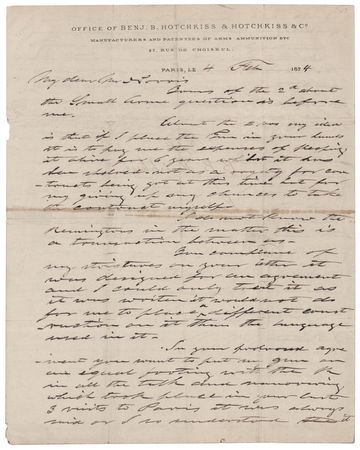 OFFICE OF BENJ. B. HOTCHKISS & HOTCHKISS & Co
MANUFACTURERS AND PATENTEES OF ARMS AMMUNITION ETC
27, RUE DE CHOISEUL.
PARIS, LE 4 Feb 1874
My dear Mr Norris
Yours of the 2d about
the Small Arms question is before
me.
About the 2 my idea
is that if I place the Gun in your hands
it is to pay me the expenses of keeping
it alive for 6 years what it has
been not as a royalty for con-
tracts being got at this time not for
my giving up any chances to take
the myself
I do not the
Remingtons in the matter this is
a transaction between us.
You complain of
my strictures on your letter it
was designed for an agreement
and I could only treat it as
it was written it would not do
for me to place a different const-
ruction on it than the language
used in it.
In your proposed agree-
ment you want to put my gun on
an equal footing with the R
in all the talk and manoevring
which took place in your last
3 visits to Paris it was always
said or I so understood it